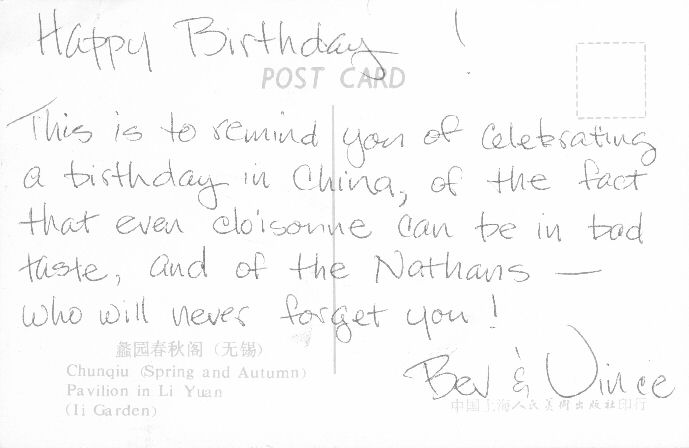 Happy Birthday !
POST CARD
This is to remind you of celebrating
a birthday in China, of the fact
that even cloisonne can be in bad
taste, and of the Nathans —
who will never forget you!
Bev & Vince
蠡园春秋阁（无锡）
Chunqiu (Spring and Autumn)
Pavilion in Li Yuan
(Ii Garden)
中国上海人民美術出版社印行